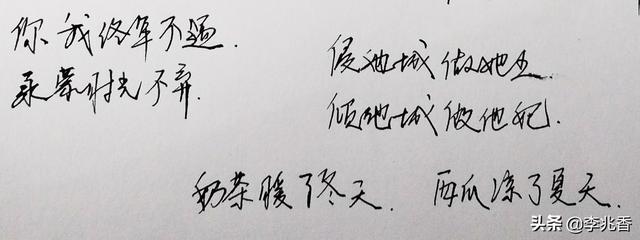 你我终年不遇.
承蒙时光不弃.
侵她城 做她王
倾他城 做他妃.
奶茶暖了冬天. 西瓜凉了夏天.
头条 @李兆香